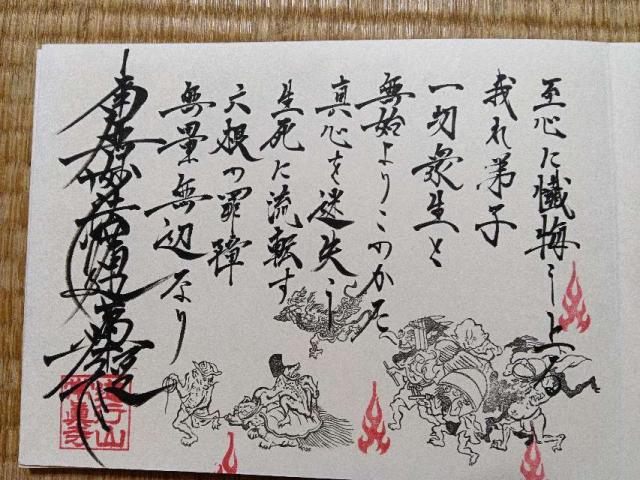 至心に懺悔し上る
我れ弟子
一切衆生と
無始よりこのかた
真心を迷失し
生死に流転す
六根の罪障
無量無辺なり
南無妙法蓮華経